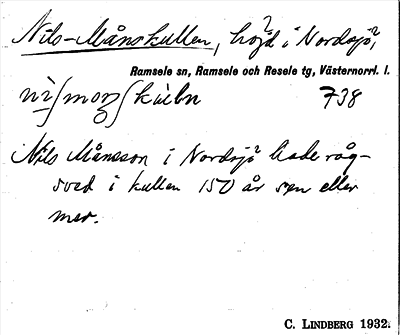 Nils-Månskullen, höjd i Nordsjö,
Ramsele sn, Ramsele och Resele tg, Västernorrl. l.
738
Nils Månsson i Nordsjö hade råg-
sved i kullen 150 år sen eller
mer.
C. LINDBERG 1932.